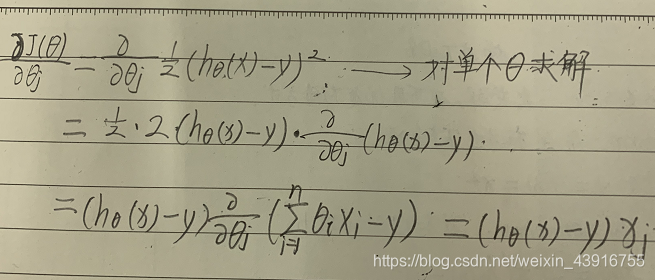 ∂J(θ)/∂θj = ∂/∂θj 1/2 (hθ(x)-y)² ⟶ 对单个θ求解
= 1/2 · 2 · (hθ(x)-y) · ∂/∂θj (hθ(x)-y).
= (hθ(x)-y) ∂/∂θj (∑_{i=1}^{n} θixi-y) = (hθ(x)-y) xj
https://blog.csdn.net/weixin_43916755